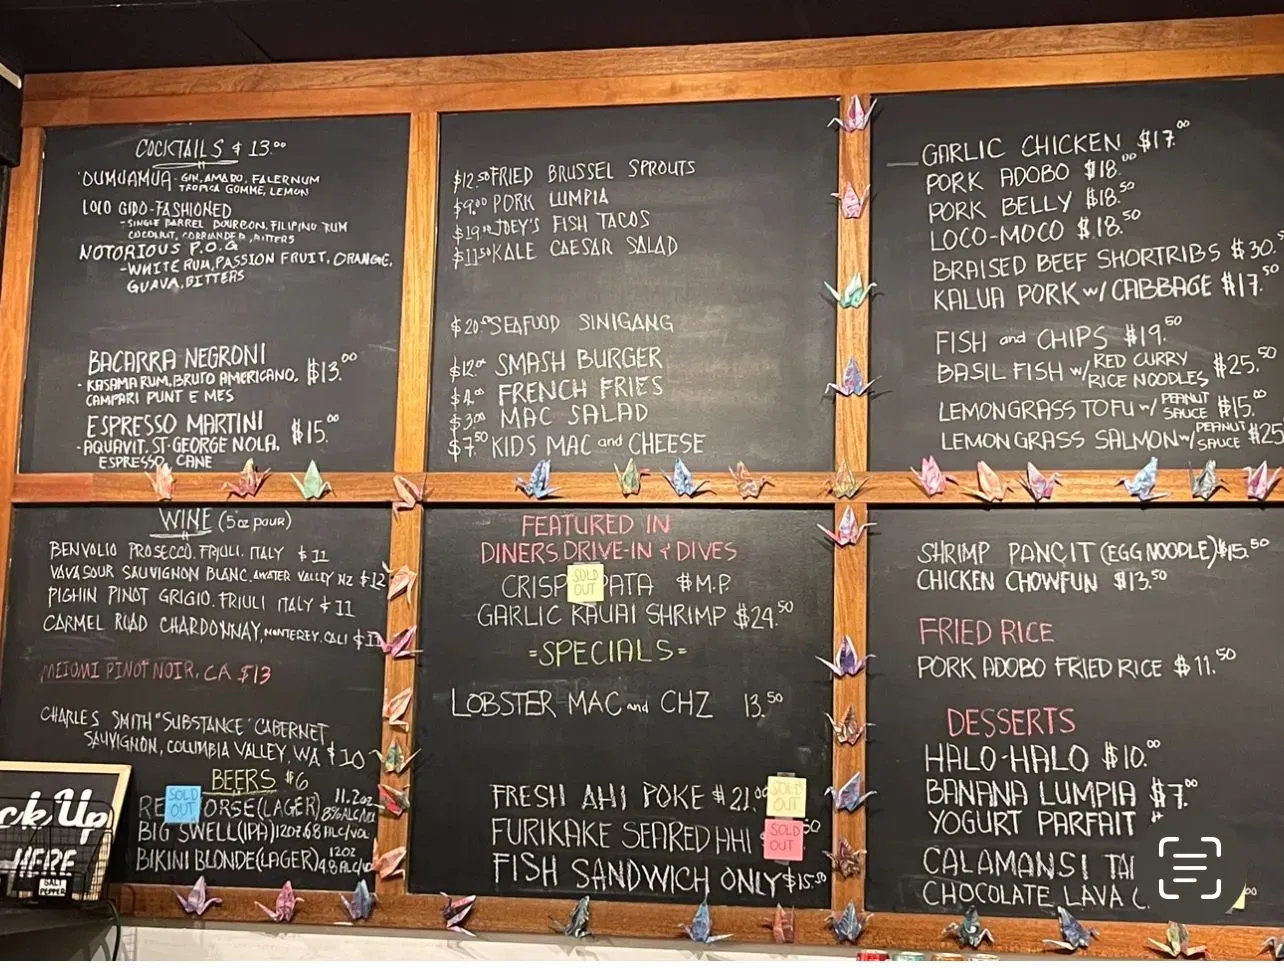 COCKTAILS $13.00
OUMUAMUA - GIN, AMARO, FALERNUM
TROPICA GOMME, LEMON
LOLO GIDO-FASHIONED
- SINGLE BARREL BOURBON, FILIPINO RUM
COCONUT, CORRIANDER, BITTERS
NOTORIOUS P.O.G
- WHITE RUM, PASSION FRUIT, ORANGE,
GUAVA, BITTERS
BACARRA NEGRONI
- KASAMA RUM, BRUTO AMERICANO, $13.00
CAMPARI PUNT E MES
ESPRESSO MARTINI $15.00
- AQUAVIT, ST. GEORGE NOLA,
ESPRESSO, CANE
$12.50 FRIED BRUSSEL SPROUTS
$9.00 PORK LUMPIA
$19 JOEY'S FISH TACOS
$11.50 KALE CAESAR SALAD
$20 SEAFOOD SINIGANG
$12.00 SMASH BURGER
$4.00 FRENCH FRIES
$3.00 MAC SALAD
$7.50 KIDS MAC and CHEESE
GARLIC CHICKEN $17.00
PORK ADOBO $18.00
PORK BELLY $18.50
LOCO-MOCO $18.50
BRAISED BEEF SHORTRIBS $30.
KALUA PORK w/ CABBAGE $17.50
FISH and CHIPS $19.50
BASIL FISH w/ RED CURRY RICE NOODLES $25.50
LEMONGRASS TOFU w/ PEANUT SAUCE $15.00
LEMON GRASS SALMON w/ PEANUT SAUCE $25
WINE (5oz pour)
BENVOLIO PROSECCO. FRIULI. ITALY $11
VAVASOUR SAUVIGNON BLANC, AWATER VALLEY NZ $12
PIGHIN PINOT GRIGIO. FRIULI ITALY $11
CARMEL ROAD CHARDONNAY, MONTEREY. CALI
MEIOMI PINOT NOIR. CA $13
CHARLES SMITH "SUBSTANCE" CABERNET
SAUVIGNON, COLUMBIA VALLEY, WA $10
BEERS $6
SOLD OUT
RE ORSE (LAGER) 11.2oz 8% ALC/VOL
BIG SWELL (IPA) 12oz 6.8 ALC/VOL
BIKINI BLONDE (LAGER) 12oz 4.8 ALC/VOL
ck Up
HERE
SALT
PEPPER
FEATURED IN
DINERS DRIVE-IN & DIVES
CRISP SOLD OUT PATA $M.P.
GARLIC KAUAI SHRIMP $24.50
=SPECIALS=
LOBSTER MAC and CHZ 13.50
FRESH AHI POKE $21.00 SOLD OUT
FURIKAKE SEARED AHI $ SOLD OUT 50
FISH SANDWICH ONLY $15.50
SHRIMP PANCIT (EGG NOODLE) $15.50
CHICKEN CHOWFUN $13.50
FRIED RICE
PORK ADOBO FRIED RICE $11.50
DESSERTS
HALO-HALO $10.00
BANANA LUMPIA $7.00
YOGURT PARFAIT
CALAMANSI TA
CHOCOLATE LAVA C